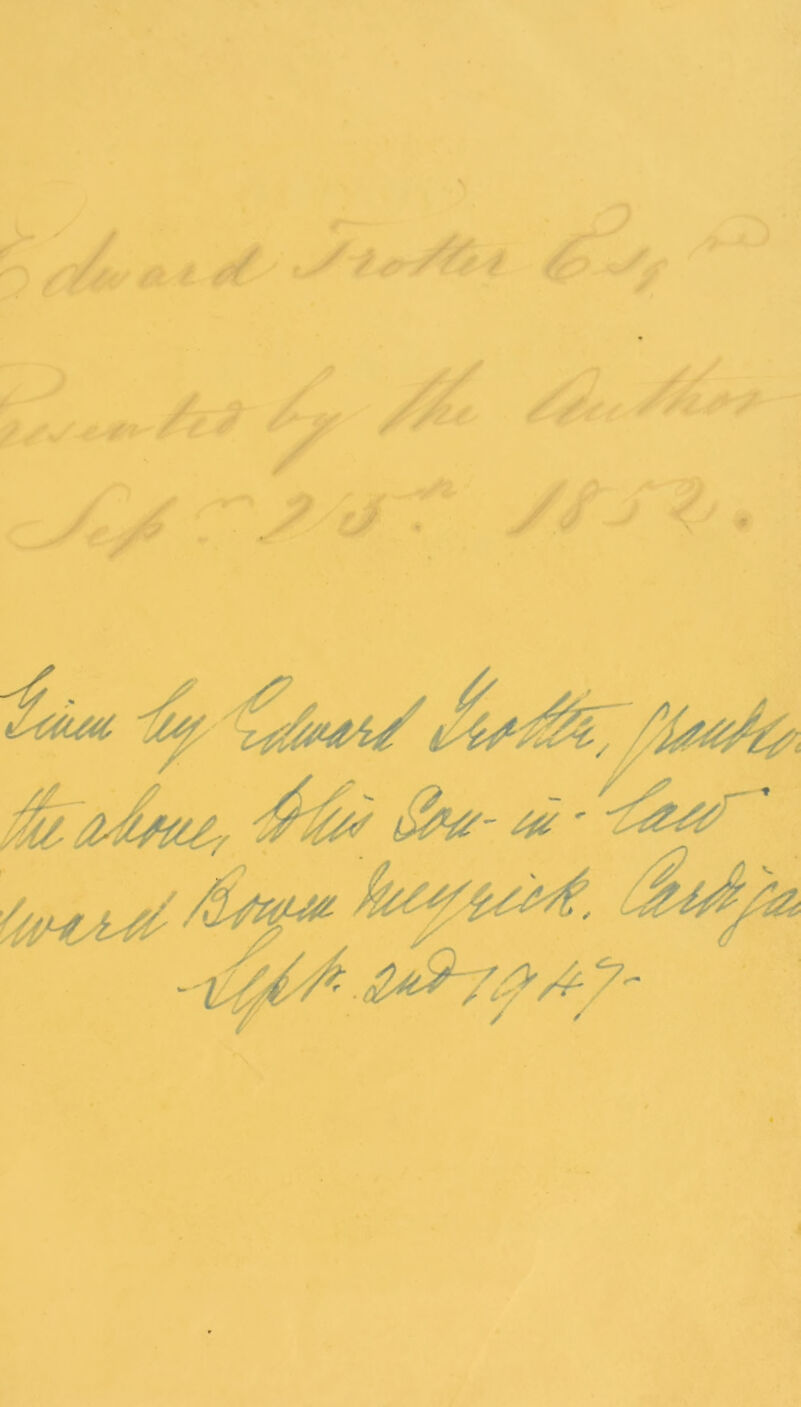 Edward Trotter Esqre
Presented by the Author
Sepr 25th. 1852.
Given by Edward Trotter, grandson
the above, to his Son-in-law
dward Bowen Meyrick. Cardigan
Sept. 2nd 1947-